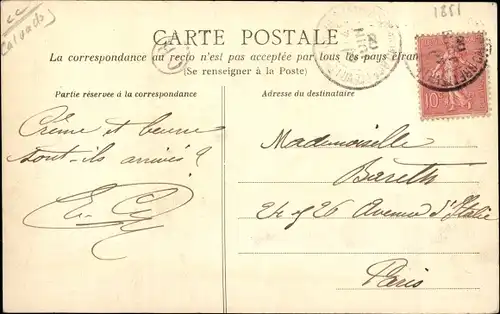 cc
Calvados
1881
CARTE POSTALE
La correspondance au recto n'est pas acceptée par tous les pays étran
(Se renseigner à la Poste)
Partie réservée à la correspondance
Adresse du destinataire
10
Crème et beurre
sont-ils arrivés ?
Mademoiselle
Bareth
24 et 26 Avenue d'Italie
Paris